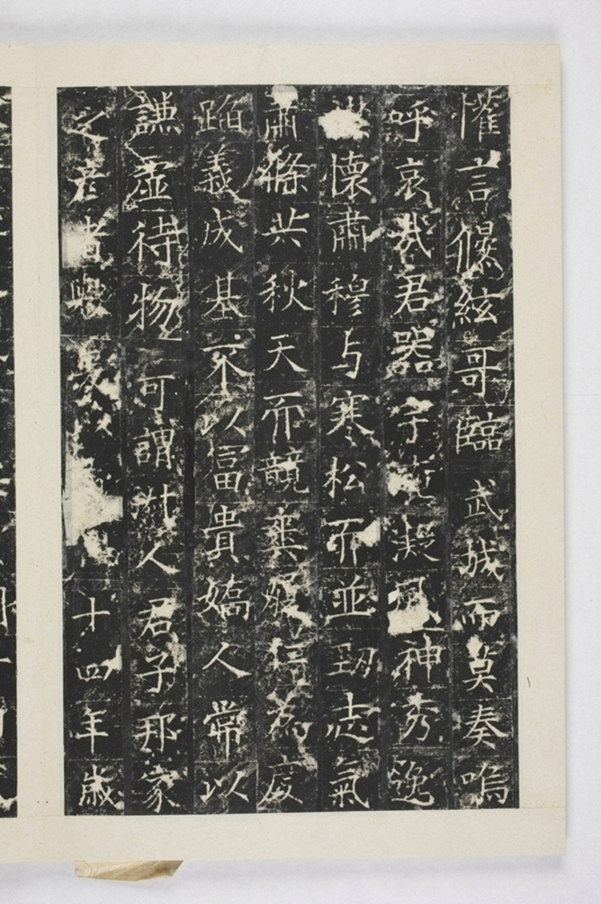 懽言偃絃哥臨武城而莫奏嗚
呼哀哉君器宇凝風神秀逸
懷肅穆与寒松而並勁志氣
肅條共秋天而競爽履行為度
蹈義成基不以冨貴嬌人常以
謙虛待物可謂淑人君子邦家
之彥者歟十四年歲